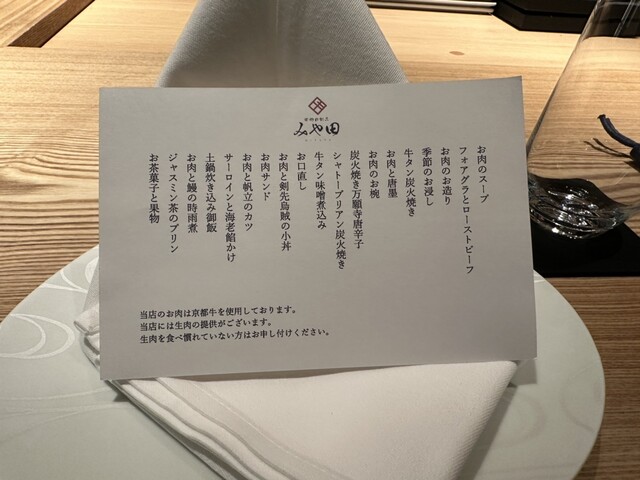 みや田
お肉のスープ
フォアグラとローストビーフ
お肉のお造り
季節のお浸し
牛タン炭火焼き
お肉と唐墨
お肉のお椀
炭火焼き万願寺唐辛子
シャトーブリアン炭火焼き
牛タン味噌煮込み
お口直し
お肉と剣先烏賊の小丼
お肉サンド
お肉と帆立のカツ
サーロインと海老餡かけ
土鍋炊き込み御飯
お肉と鰻の時雨煮
ジャスミン茶のプリン
お茶菓子と果物
当店のお肉は京都牛を使用しております。
当店には生肉の提供がございます。
生肉を食べ慣れていない方はお申し付けください。